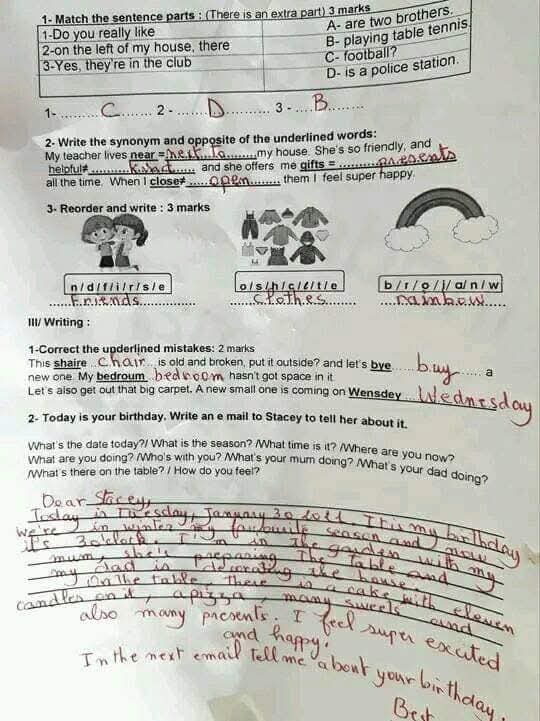 1- Match the sentence parts : (There is an extra part) 3 marks
1-Do you really like A- are two brothers.
2-on the left of my house, there B- playing table tennis.
3-Yes, they're in the club C- football?
D- is a police station.
1- ......C...... 2 - ......D......... 3 - ....B........
2- Write the synonym and opposite of the underlined words:
My teacher lives near = next to ........my house. She's so friendly, and
helpful≠ ............ and she offers me gifts = ............presents
all the time. When I close≠ .....open........ them I feel super happy.
3- Reorder and write : 3 marks
n / d / f / i / r / s / e
o / s / h / c / l / t / e
b / r / o / i / a / n / w
Friends
clothes
rainbow
III/ Writing :
1-Correct the underlined mistakes: 2 marks
This shaire ..chair... is old and broken, put it outside? and let's bye ......buy...... a
new one. My bedroum ..bedroom hasn't got space in it
Let's also get out that big carpet. A new small one is coming on Wensdey ...Wednesday
2- Today is your birthday. Write an e mail to Stacey to tell her about it.
What's the date today?/ What is the season? /What time is it? /Where are you now?
What are you doing? /Who's with you? /What's your mum doing? /What's your dad doing?
/What's there on the table? / How do you feel?
Dear Stacey,
Today is Tuesday, January 30 . It is my birthday
We're in winter my favourite season and now
it's 3 o'clock. I'm in the garden with my
mum, she's preparing the table and
my dad is decorating the house.
On the table, there is a cake with eleven
candles on it, a pizza, many sweets and
also many presents. I feel super excited
and happy.
In the next email tell me about your birthday.
Best